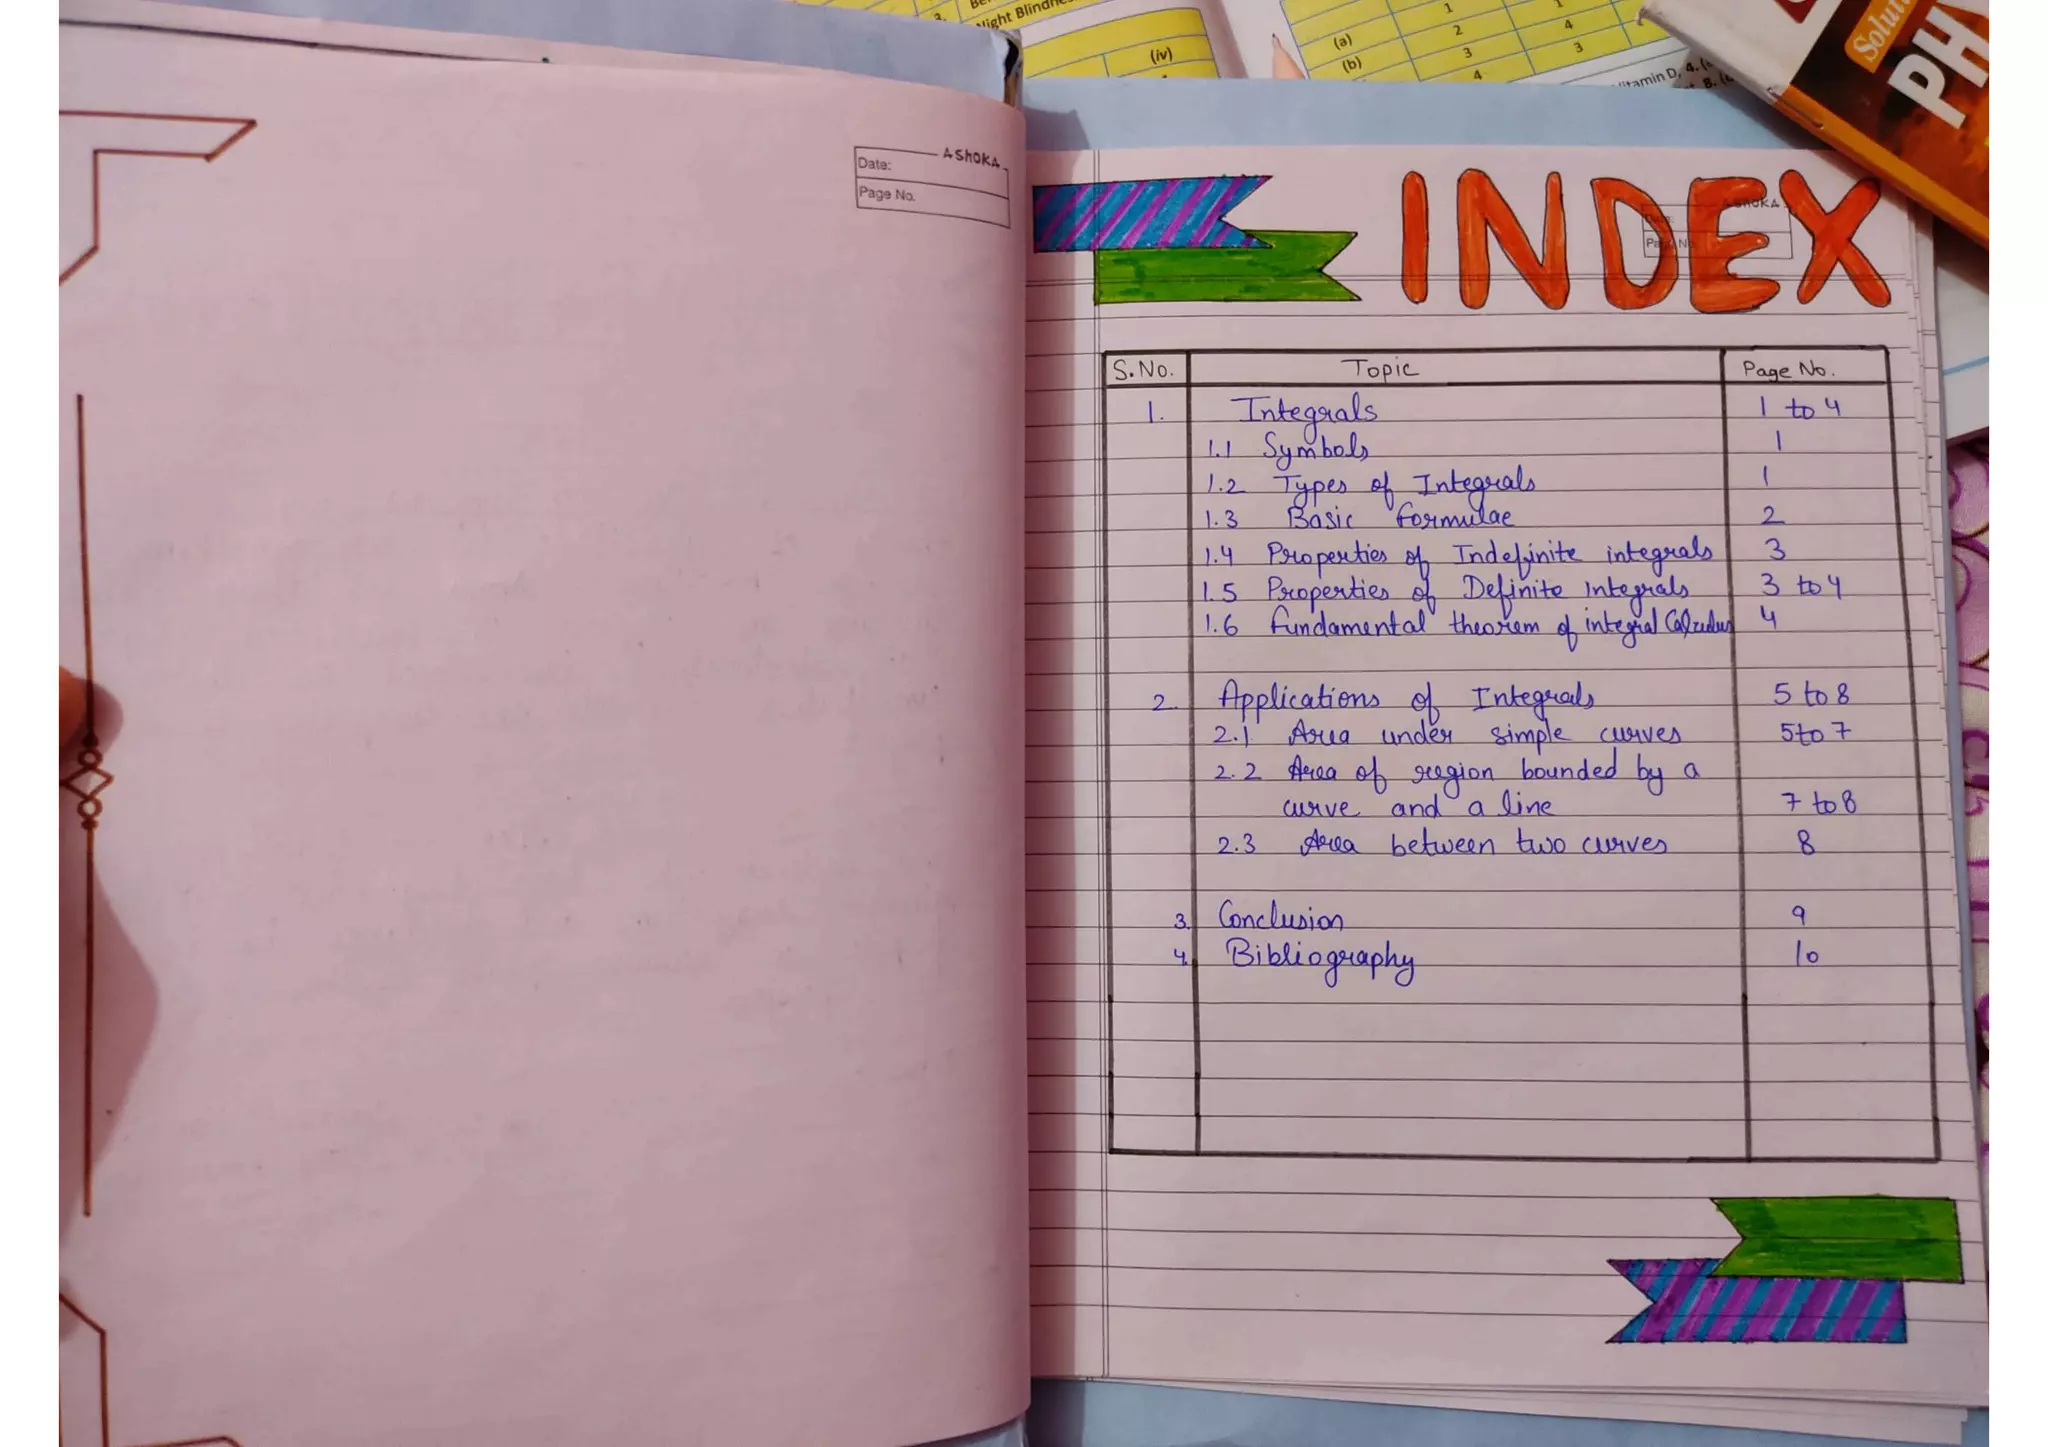 Night
(iv)
(a)
(b)
1
2
3
4
1
4
3
Vitamin D, 4.
Solut
PH
ASHOKA
Date:
Page No.
INDEX
ASHOKA
Date:
S.No. Topic Page No.
1. Integrals 1 to 4
1.1 Symbols 1
1.2 Types of Integrals 1
1.3 Basic formulae 2
1.4 Properties of Indefinite integrals 3
1.5 Properties of Definite integrals 3 to 4
1.6 fundamental theorem of integral Calculus 4
2. Applications of Integrals 5 to 8
2.1 Area under simple curves 5 to 7
2.2 Area of region bounded by a
curve and a line 7 to 8
2.3 Area between two curves 8
3. Conclusion 9
4. Bibliography 10